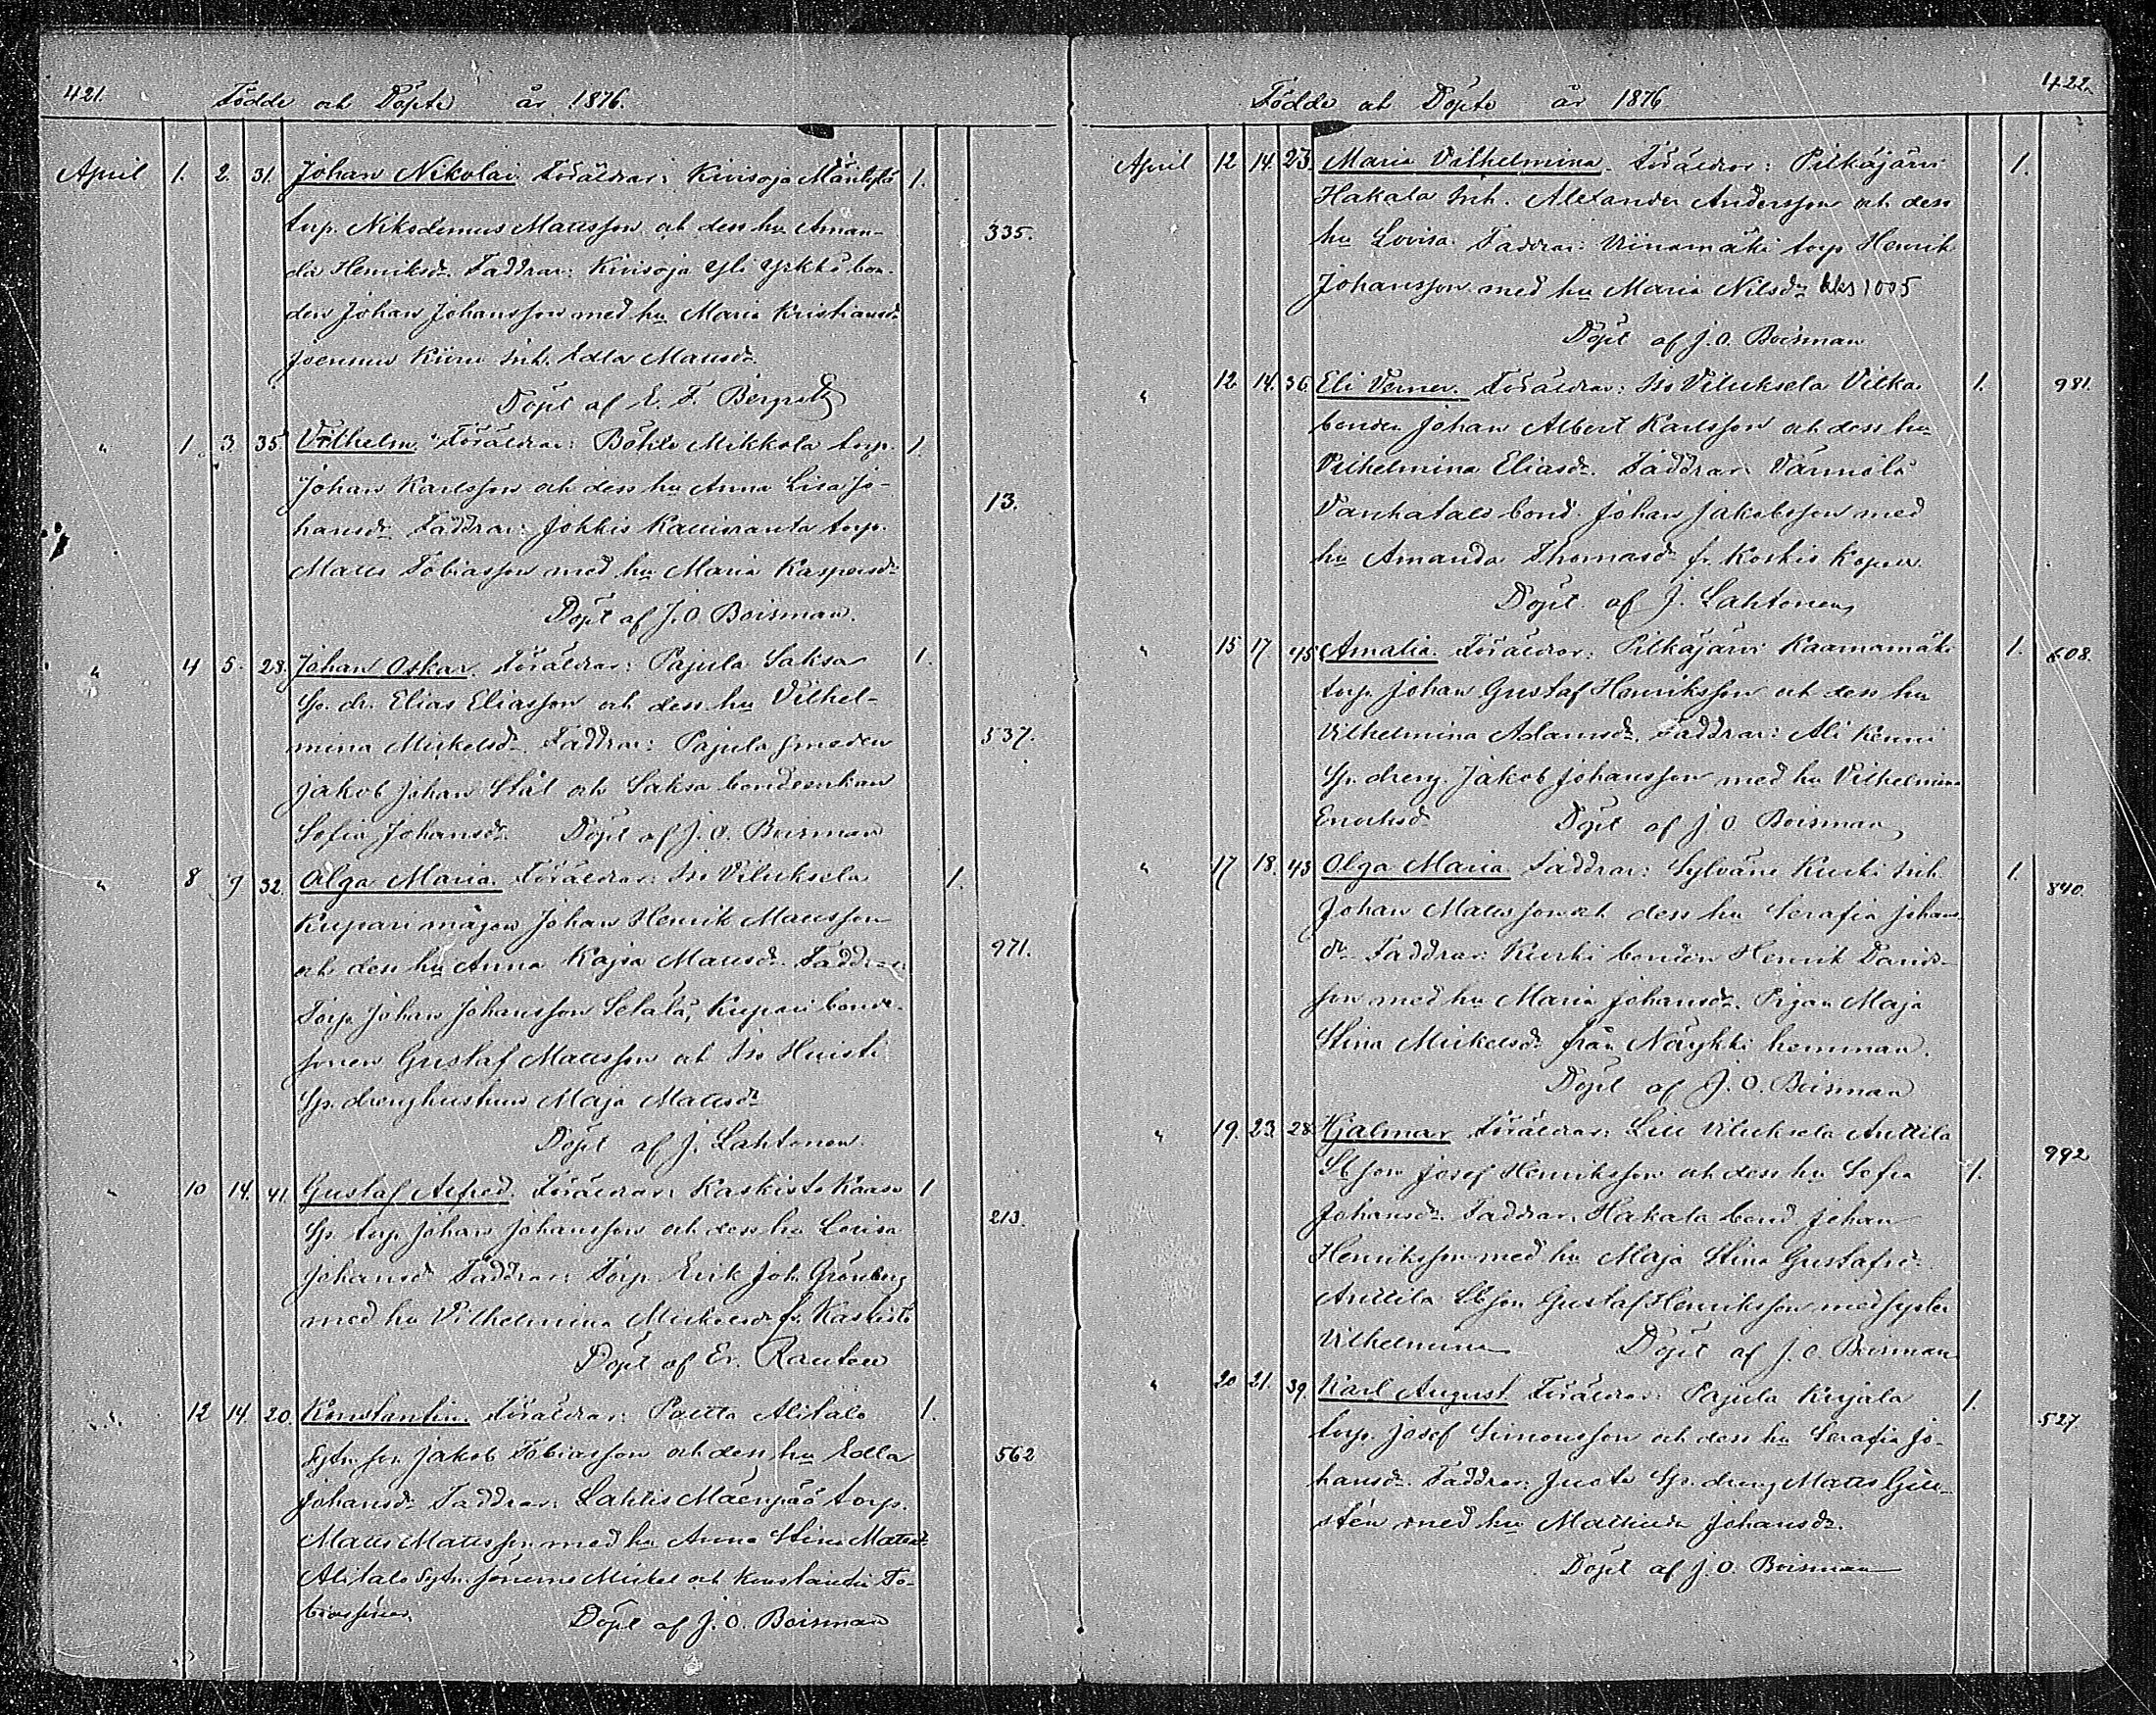 421. Födde och Döpte år 1876.
April 1. 2. 31. Johan Nikolai. Föräldrar: Kivisoja Mäntylä 1.
torp. Nikodemus Mattsson och dess hu Aman- 335.
da Henriksdr. Faddrar: Kivisoja Yli Yrkkö bon-
den Johan Johansson med hu Maria Kristiansdr
Joensuu inh. Edla Mattsdr.
Döpt af E. F. Bergroth
" 1. 3. 35 Vilhelm. Föräldrar: Böhle Mikkola torp. 1
Johan Karlsson och dess hu Anna Lisa Jo-
hansdr. Faddrar: Jokkis Kallioranta torp. 13.
Matts Tobiasson med hu Maria Kaspersdr
Döpt af J. O. Boisman.
" 4 5. 28. Johan Oskar. Föräldrar: Pajula Saksa 1.
Sp. dr. Elias Eliasson och dess hu Vilhel-
mina Mickelsdr. Faddrar: Pajula smeden 537.
Jakob Johan Stål och Saksa bondeenkan
Sofia Johansdr. Döpt af J. O. Boisman
" 8 9 32. Olga Maria. Föräldrar: Iso Viluksela 1.
Kupari mågen Johan Henrik Mattsson
och dess hu Anna Kajsa Mattsdr. Faddrar: 971.
Torp. Johan Johansson Setälä, Kupari bonde-
sonen Gustaf Mattsson och Iso Huisti
Sp. dränghustrun Maja Mattsdr
Döpt af J. Lahtonen
" 10 14. 41. Gustaf Alfred. Föräldrar: Kaskisto Kaase 1
Sp. torp. Johan Johansson och dess hu Lovisa 213.
Johansdr. Faddrar: Torp. Erik Joh. Grönberg
med hu Vilhelmina Mickelsdr fr. Kaskisto
Döpt af Er. Rauten
" 12 14. 20. Konstantin. Föräldrar: Paltta Alitalo 1.
Sytn. son Jakob Tobiasson och dess hu Edla 562
Johansdr. Faddrar: Lahtis Mäenpää torp.
Matts Mattsson med hu Anna Stina Mattsdr.
Alitalo Sytn. sönerne Mickel och Konstantin To-
biassöner. Döpt af J. O. Boisman
Födde och Döpte år 1876 422.
April 12 14. 23. Maria Vilhelmina. Föräldrar: Pitkäjärvi 1.
Hakala Inh. Alexander Andersson och dess
hu Lovisa. Faddrar: Viinamäki torp. Henrik
Johansson med hu Maria Nilsdr 1005
Döpt af J. O. Boisman
" 12 14. 36. Eli Verner. Föräldrar: Iso Viluksela Vilka 1. 981.
bonden Johan Albert Karlsson och dess hu
Vilhelmina Eliasdr. Faddrar: Vännölä
Vanhatalo bond. Johan Jakobsson med
hu Amanda Thomasdr fr. Koskis Kapell.
Döpt af J. Lahtonen
" 15 17 45 Amalia. Föräldrar: Pitkäjärvi Kaamamäki 1. 608.
torp. Johan Gustaf Henriksson och dess hu
Vilhelmina Adamsdr. Faddrar: Ali Kenni
Sp. dreng. Jakob Johansson med hu Vilhelmina
Enoksdr Döpt af J. O. Boisman
" 17 18. 43 Olga Maria Faddrar: Sylväne Kurki Inh 1. 840.
Johan Mattsson och dess hu Serafia Johans-
dr. Faddrar: Kurki bonden Henrik Davids-
son med hu Maria Johansdr. Pigan Maja
Stina Mickelsdr från Näykki hemman.
Döpt af J. O. Boisman
" 19. 23. 28 Hjalmar Föräldrar: Lill Viluksela Anttila 992
Sson Josef Henriksson och dess hu Sofia 1.
Johansdr. Faddrar. Hakala bond Johan
Henriksson med hu Maja Stina Gustafsdr.
Anttila Gustaf Henriksson med syster
Vilhelmina Döpt af J. O. Boisman
" 20 21. 39. Karl August. Föräldrar: Pajula Kujala 1.
torp. Josef Simonsson och dess hu Serafia Jo- 527.
hansdr. Faddrar: Juota Sp. dreng Matts Gill-
stén med hu Mathilda Johansdr.
Döpt af J. O. Boisman